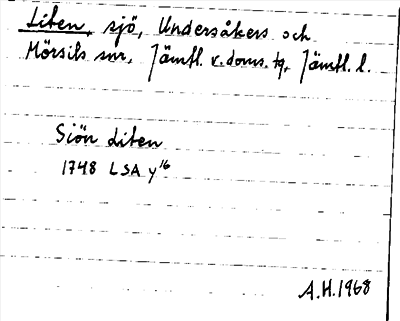 Liten, sjö, Undersåkers och
Mörsils snr, Jämtl. v. doms. tg, Jämtl. l.
Siön Liten
1748 LSA y 16
A.H. 1968